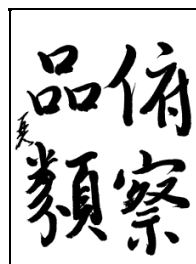 俯察
品類